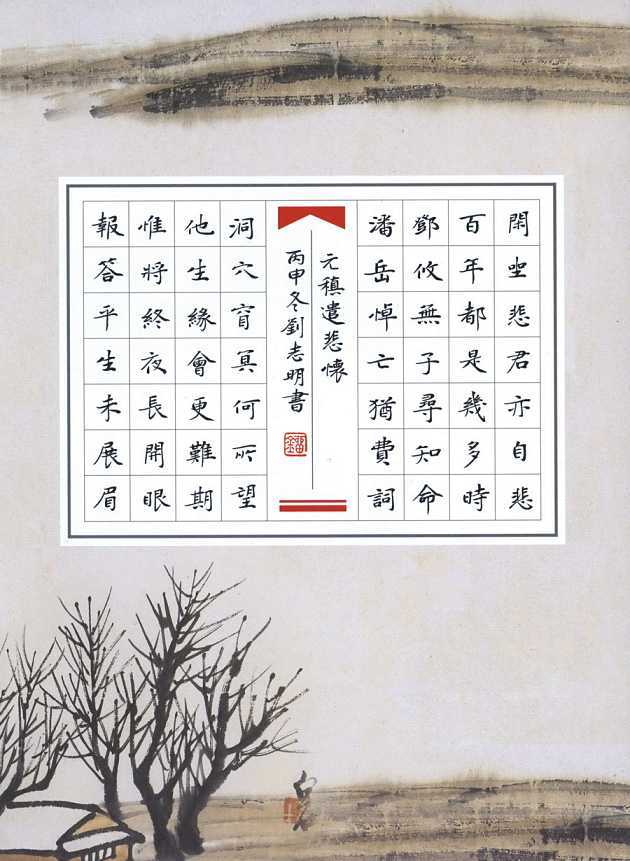 閑坐悲君亦自悲
百年都是幾多時
鄧攸無子尋知命
潘岳悼亡猶費詞
元稹遣悲懷
丙申冬劉志明書
洞穴窅冥何所望
他生緣會更難期
惟將終夜長開眼
報答平生未展眉